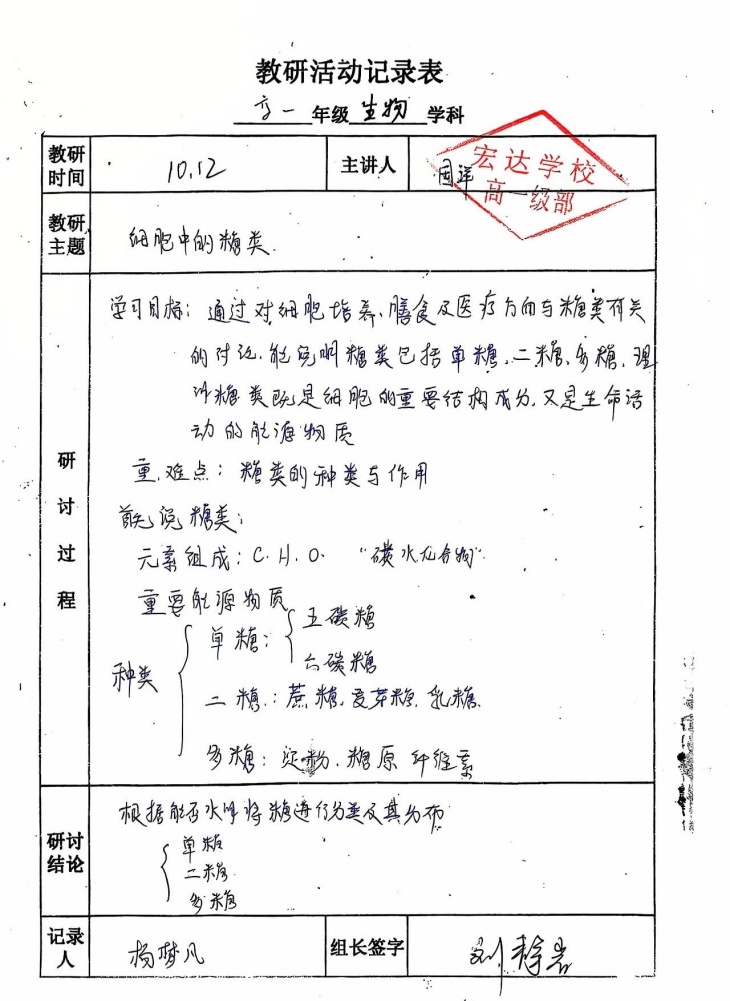 教研活动记录表
高一 年级 生物 学科
教研时间 10.12 主讲人 国洋
宏达学校
高一级部
教研主题 细胞中的糖类.
研讨过程
学习目标: 通过对细胞培养、膳食及医疗方面与糖类有关
的讨论,能说明糖类包括单糖、二糖、多糖,理
计糖类既是细胞的重要结构成分,又是生命活
动的能源物质
重、难点: 糖类的种类与作用
首先说糖类:
元素组成: C. H. O. "碳水化合物"
重要能源物质
种类
单糖: 五碳糖
六碳糖
二糖: 蔗糖、麦芽糖、乳糖.
多糖: 淀粉、糖原 纤维素
研讨结论
根据能否水解将糖进行分类及其分布
单糖
二糖
多糖
记录人 杨梦凡 组长签字 刘